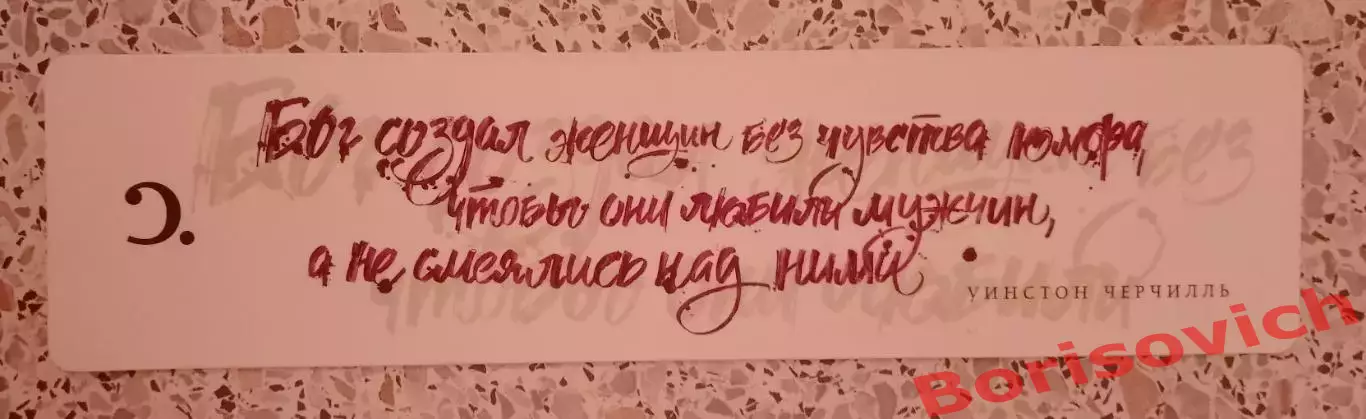 Бог создал женщин без чувства юмора,
чтобы они любили мужчин,
а не смеялись над ними
УИНСТОН ЧЕРЧИЛЛЬ
Borisovich